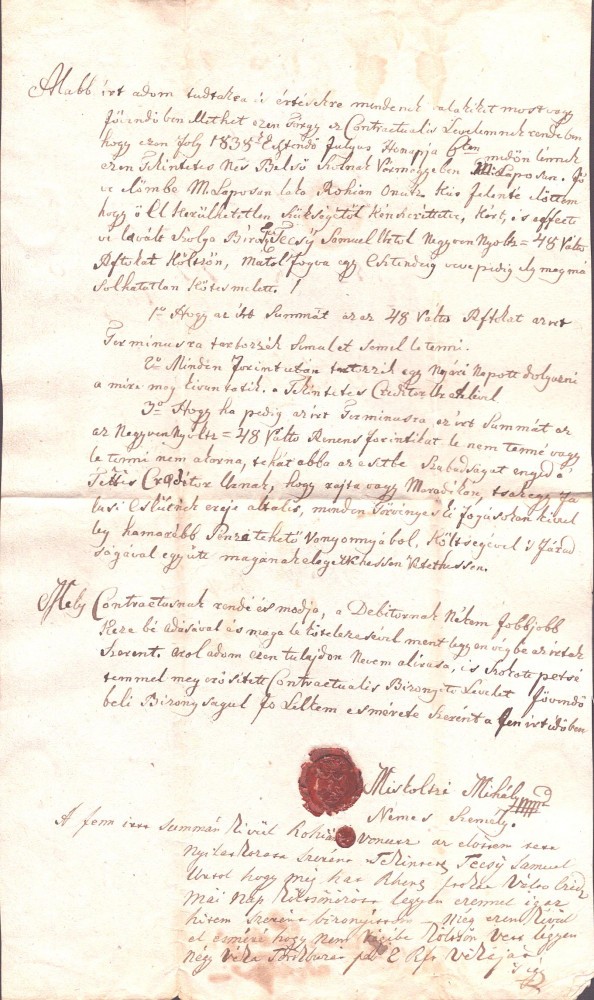 Alabb irt adom tudtakra és értésekre mindenek valakiket most vagy
jövendöben illethet ezen Targy es Contractualis Levelemnek rendiben
hogy ezen foly 1838k Esztendö Julyus Honapja 6ken midön lennek
ezen Tekintetes Nes Belsö Vármegyeben M. Laposon. Jö
ve elömbe M Laposon lako Rohian Onutz Kis Jelenté elöttem
hogy ö El Kerülhetetlen Szükségitöl kénszerittetve, Kért, is effect
Szolga Biro Tecsÿ Samuel Urtol Negyven Nyoltz = 48 Válto
Rftokat Költsön, Matol fogva egy Esztendeig ugy pedig oly magmá
solhatatlan Kötes melett. /
1o Hogy az irtt Summát azaz 48 Válto Rftokat azon
Terminusra tartozzék Simul et Semel le tenni.
2o Minden forint után tartozzik egy Nyári Napott dolgozni
a mire meg kivantatik. a Tekintetes Creditor Uraknal
3o Hogy ha pedig az irt Terminusra ez irt Summát az
az Negyven Nyoltz = 48 Válto Renens forintokat le nem tenné vagy
le tenni nem akarna, tehát abba az esetbe Szabadságat enged a
Tettes Creditor Urnak, hogy rajta vagy Maradékin, tsak egy Fa
lusi Eskütnek ereje altalis, minden Törvényes Ut fogásokon kivül
leg hamarébb Pénzé tehetö Vonyomnyából, Költségével is Fárad
ságával együtt magának eleget vehessen vétethessen.
Mely Contractusnak rendé és modja, a Debitornak Nékem fobbjobb
Keze bé adásával és maga le kötelezésével ment legyen végbe az irtak
Szerent. arol adom ezen tulajdon Nevem alirasa, is Szokott petsé
temmel meg erösitett Contractualis Bizonyito Levelet jövendö
beli Bizonyságul Jo Lelkem esmérete szerént a fen irt idöben
Miskoltzi Mihály
Nemes Személy.
A fenn irtt summán kivül Rohian Vonutz az elöttem tett
nyilatkozása szerént Tekintetes Tecsÿ Samuel
Urtol hogy még hat Rhens Válto
Mái Nap költsönözött legyen ezennel igaz
hitem szerént bizonyitom még ezen kivül
el esméri hogy Nem költsön vett legyen
négy véka Buzát 2 Rf vékáját